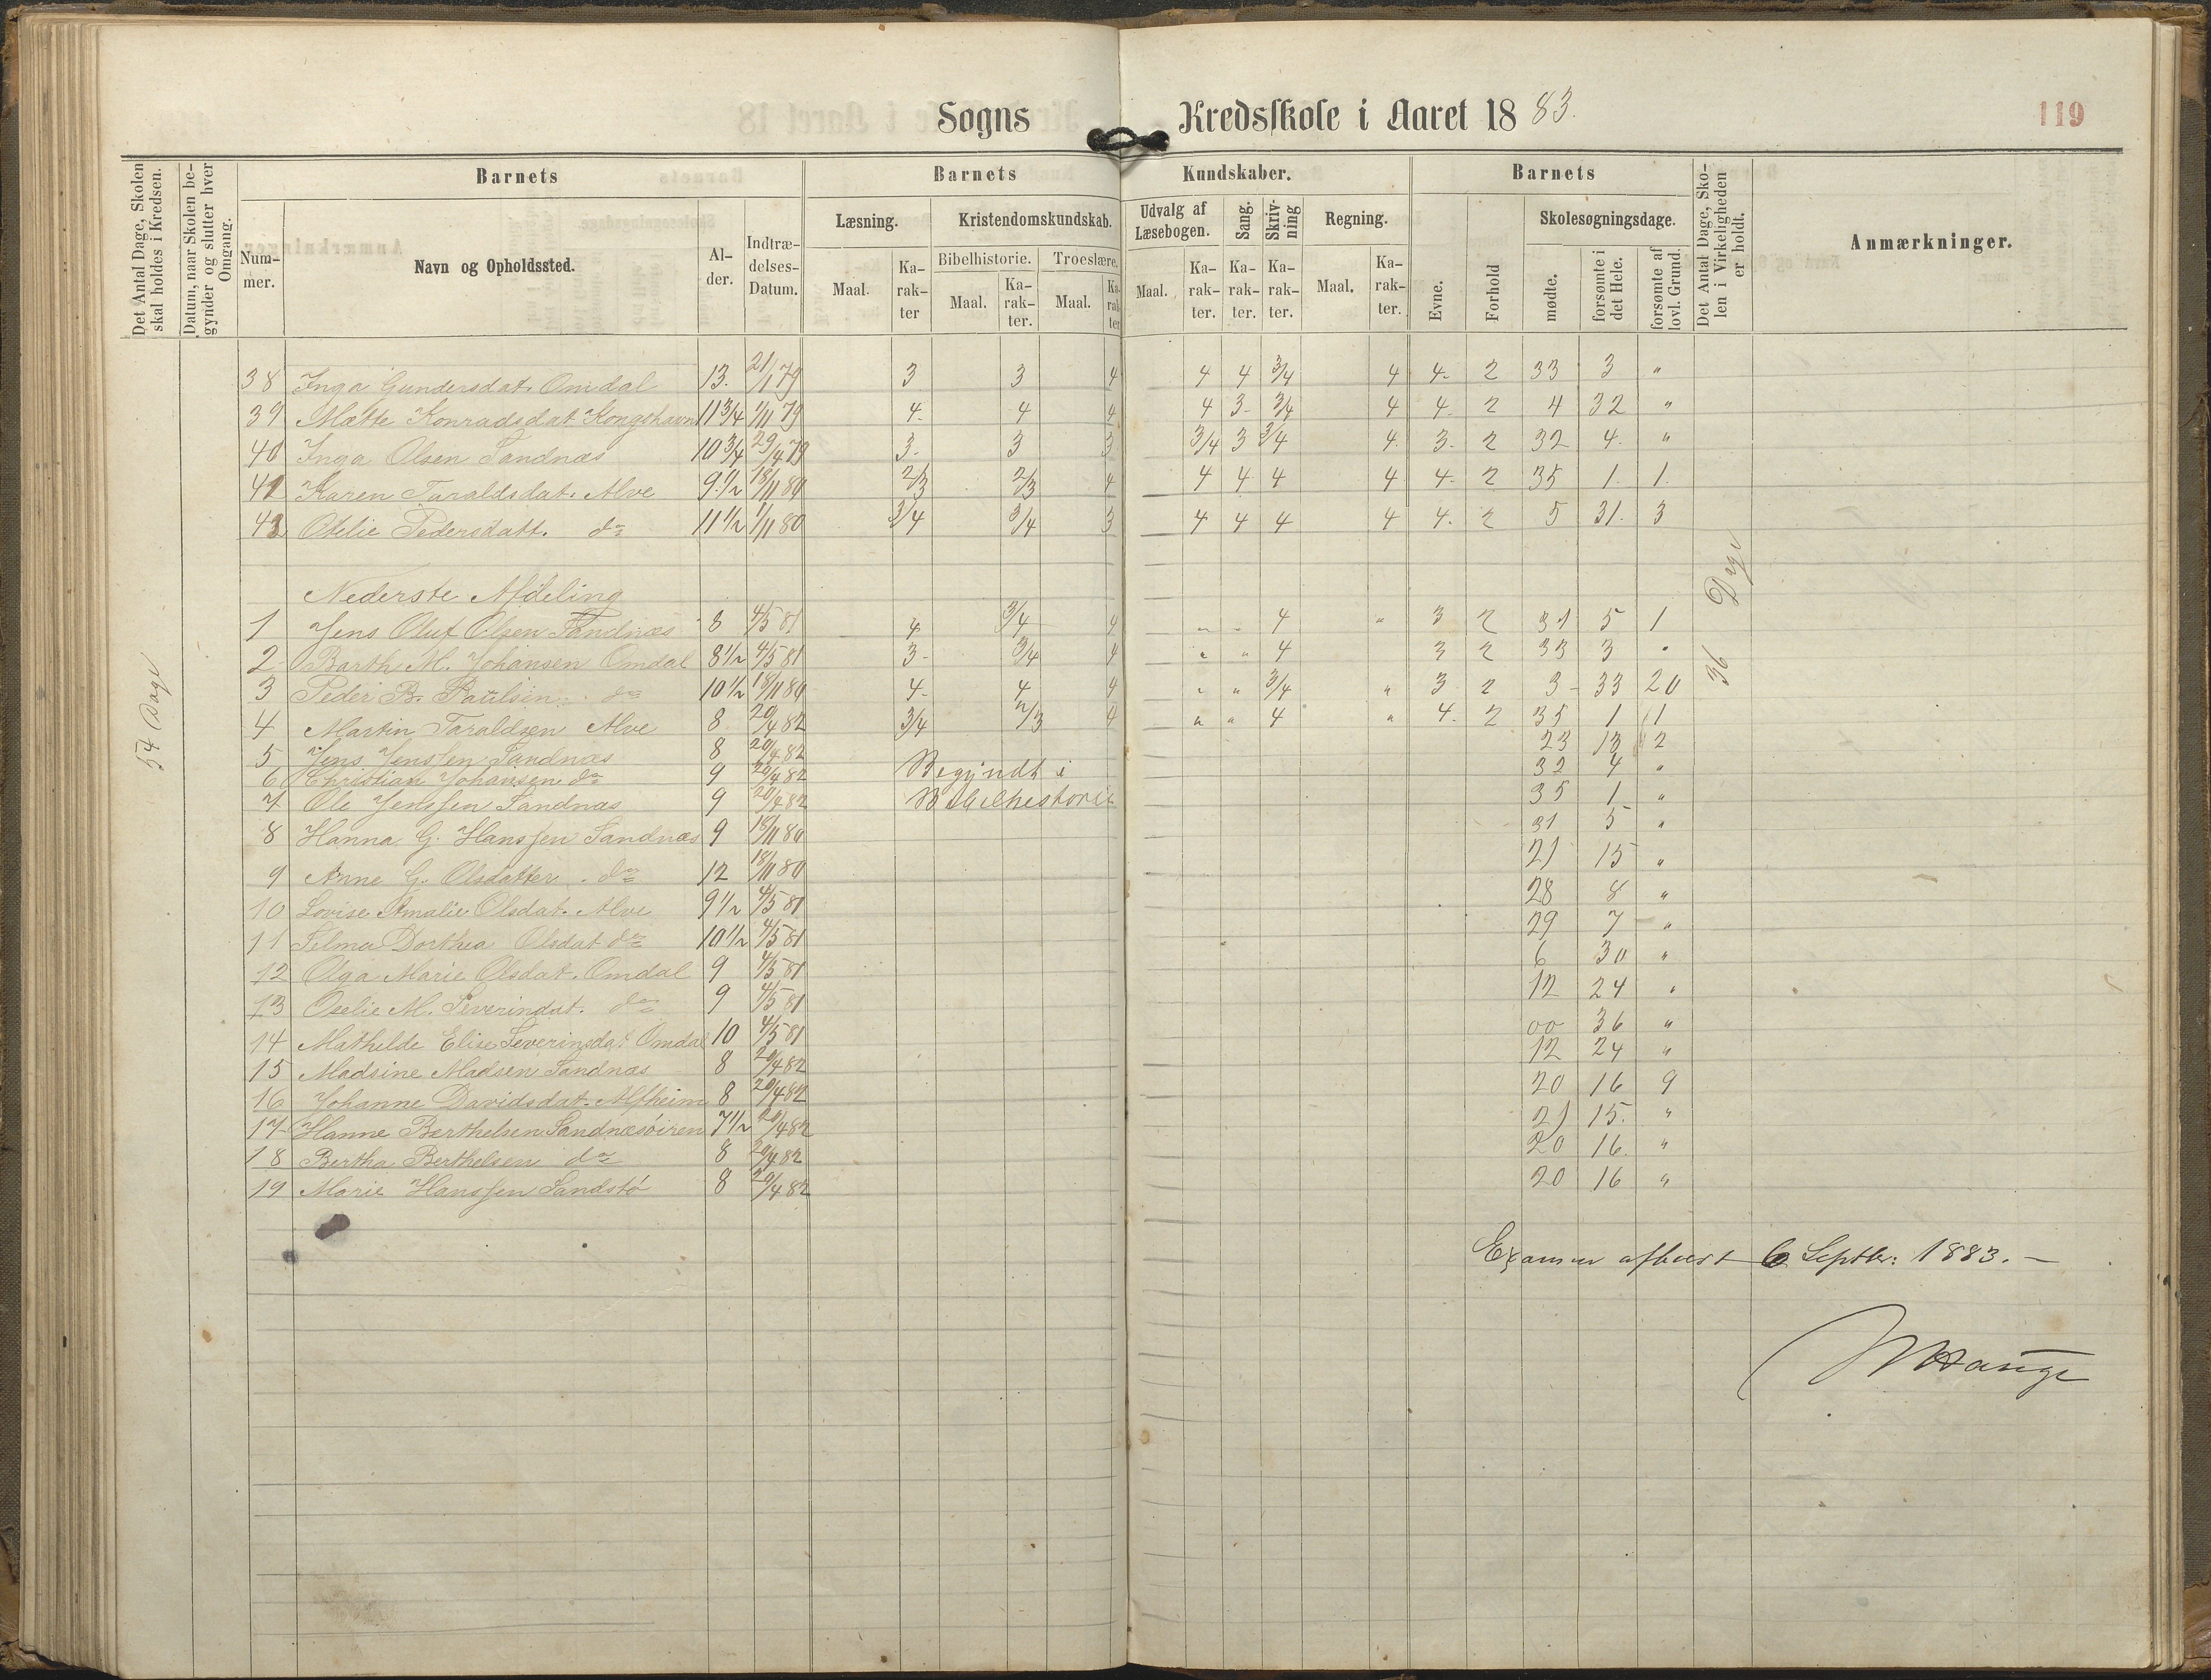 Sogns Kredsskole i Aaret 1883.
119
Det Antal Dage, Skolen skal holdes i Kredsen.
Datum, naar Skolen begynder og slutter hver Omgang.
Barnets
Barnets
Kundskaber.
Barnets
Det Antal Dage, Skolen i Virkeligheden er holdt.
Anmærkninger.
Nummer.
Navn og Opholdssted.
Alder.
Indtrædelses-Datum.
Læsning.
Kristendomskundskab.
Udvalg af Læsebogen.
Sang.
Skrivning
Regning.
Evne.
Forhold
Skolesøgningsdage.
Bibelhistorie.
Troeslære.
Maal. Karakter
Maal. Karakter.
Maal. Karakter
Maal. Karakter. Karakter. Karakter.
Maal. Karakter.
mødte.
forsømte i det Hele.
forsømte af lovl. Grund.
38 Inga Gundersdat. Omdal 13. 21/1 79 3 3 4 4 4 3/4 4 4- 2 33 3 "
39 Mætte Konradsdat Kongshavn 11 3/4 1/11 79 4- 4 4 4 3- 3/4 4 4- 2 4 32 "
40 Inga Olsen Sandnæs 10 3/4 29/4 79 3- 3 3 3/4 3 3/4 4. 3- 2 32 4. "
41 Karen Taraldsdat. Alve 9 1/2 18/11 80 2/3 2/3 4 4 4 4 4 4- 2 35 1. 1.
43 Otelie Pedersdatt. do 11 1/2 1/11 80 3/4 3/4 3 4 4 4 4 4. 2 5 31. 3
Nederste Afdeling
1 Jens Oluf Olsen Sandnæs 8 4/5 81 4 3/4 4 " " 4 " 3 2 31 5 1
2 Barth M. Johansen Omdal 8 1/2 4/5 81 3- 3/4 4 " " 4 3 2 33 3 "
3 Peder B. Paulsen do 10 1/2 18/11 80 4- 4 4 " " 3/4 " 3 2 3- 33 20
4 Martin Taraldsen Alve 8 20/4 82 3/4 2/3 4 " " 4 " 4- 2 35 1 1
5 Jens Jenssen Sandnæs 8 20/4 82 23 13 2
6 Christian Johansen do 9 20/4 82 Begyndt i 32 4 "
7 Ole Jenssen Sandnæs 9 20/4 82 Bibelhistorie 35 1 "
8 Hanna G. Hanssen Sandnæs 9 18/11 80 31 5 "
9 Anne G. Olsdatter. do 12 18/11 80 21 15 "
10 Lovise Amalie Olsdat. Alve 9 1/2 4/5 81 28 8 "
11 Selma Dorthea Olsdat do 10 1/2 4/5 81 29 7 "
12 Olga Marie Olsdat. Omdal 9 4/5 81 6 30 "
13 Oselie M. Severindat. do 9 4/5 81 12 24 "
14 Mathilde Elise Severinsdat Omdal 10 4/5 81 00 36 "
15 Madsine Madsen Sandnæs 8 20/4 82 12 24 "
16 Johanne Davidsdat. Alfheim 8 20/4 82 20 16 9
17 Hanne Berthelsen Sandnæsøiren 7 1/2 20/4 82 21 15. "
18 Bertha Berthelsen do 8 20/4 82 20 16. "
19 Marie Hanssen Sandstø 8 20/4 82 20 16 "
54 Dage
36 Dage
Examen afholdt 6 Septbr: 1883. –
Hauge